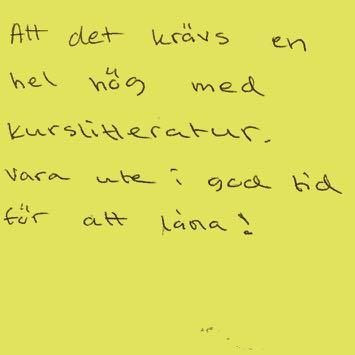 Att det krävs en
hel hög med
kurslitteratur.
vara ute i god tid
för att låna!